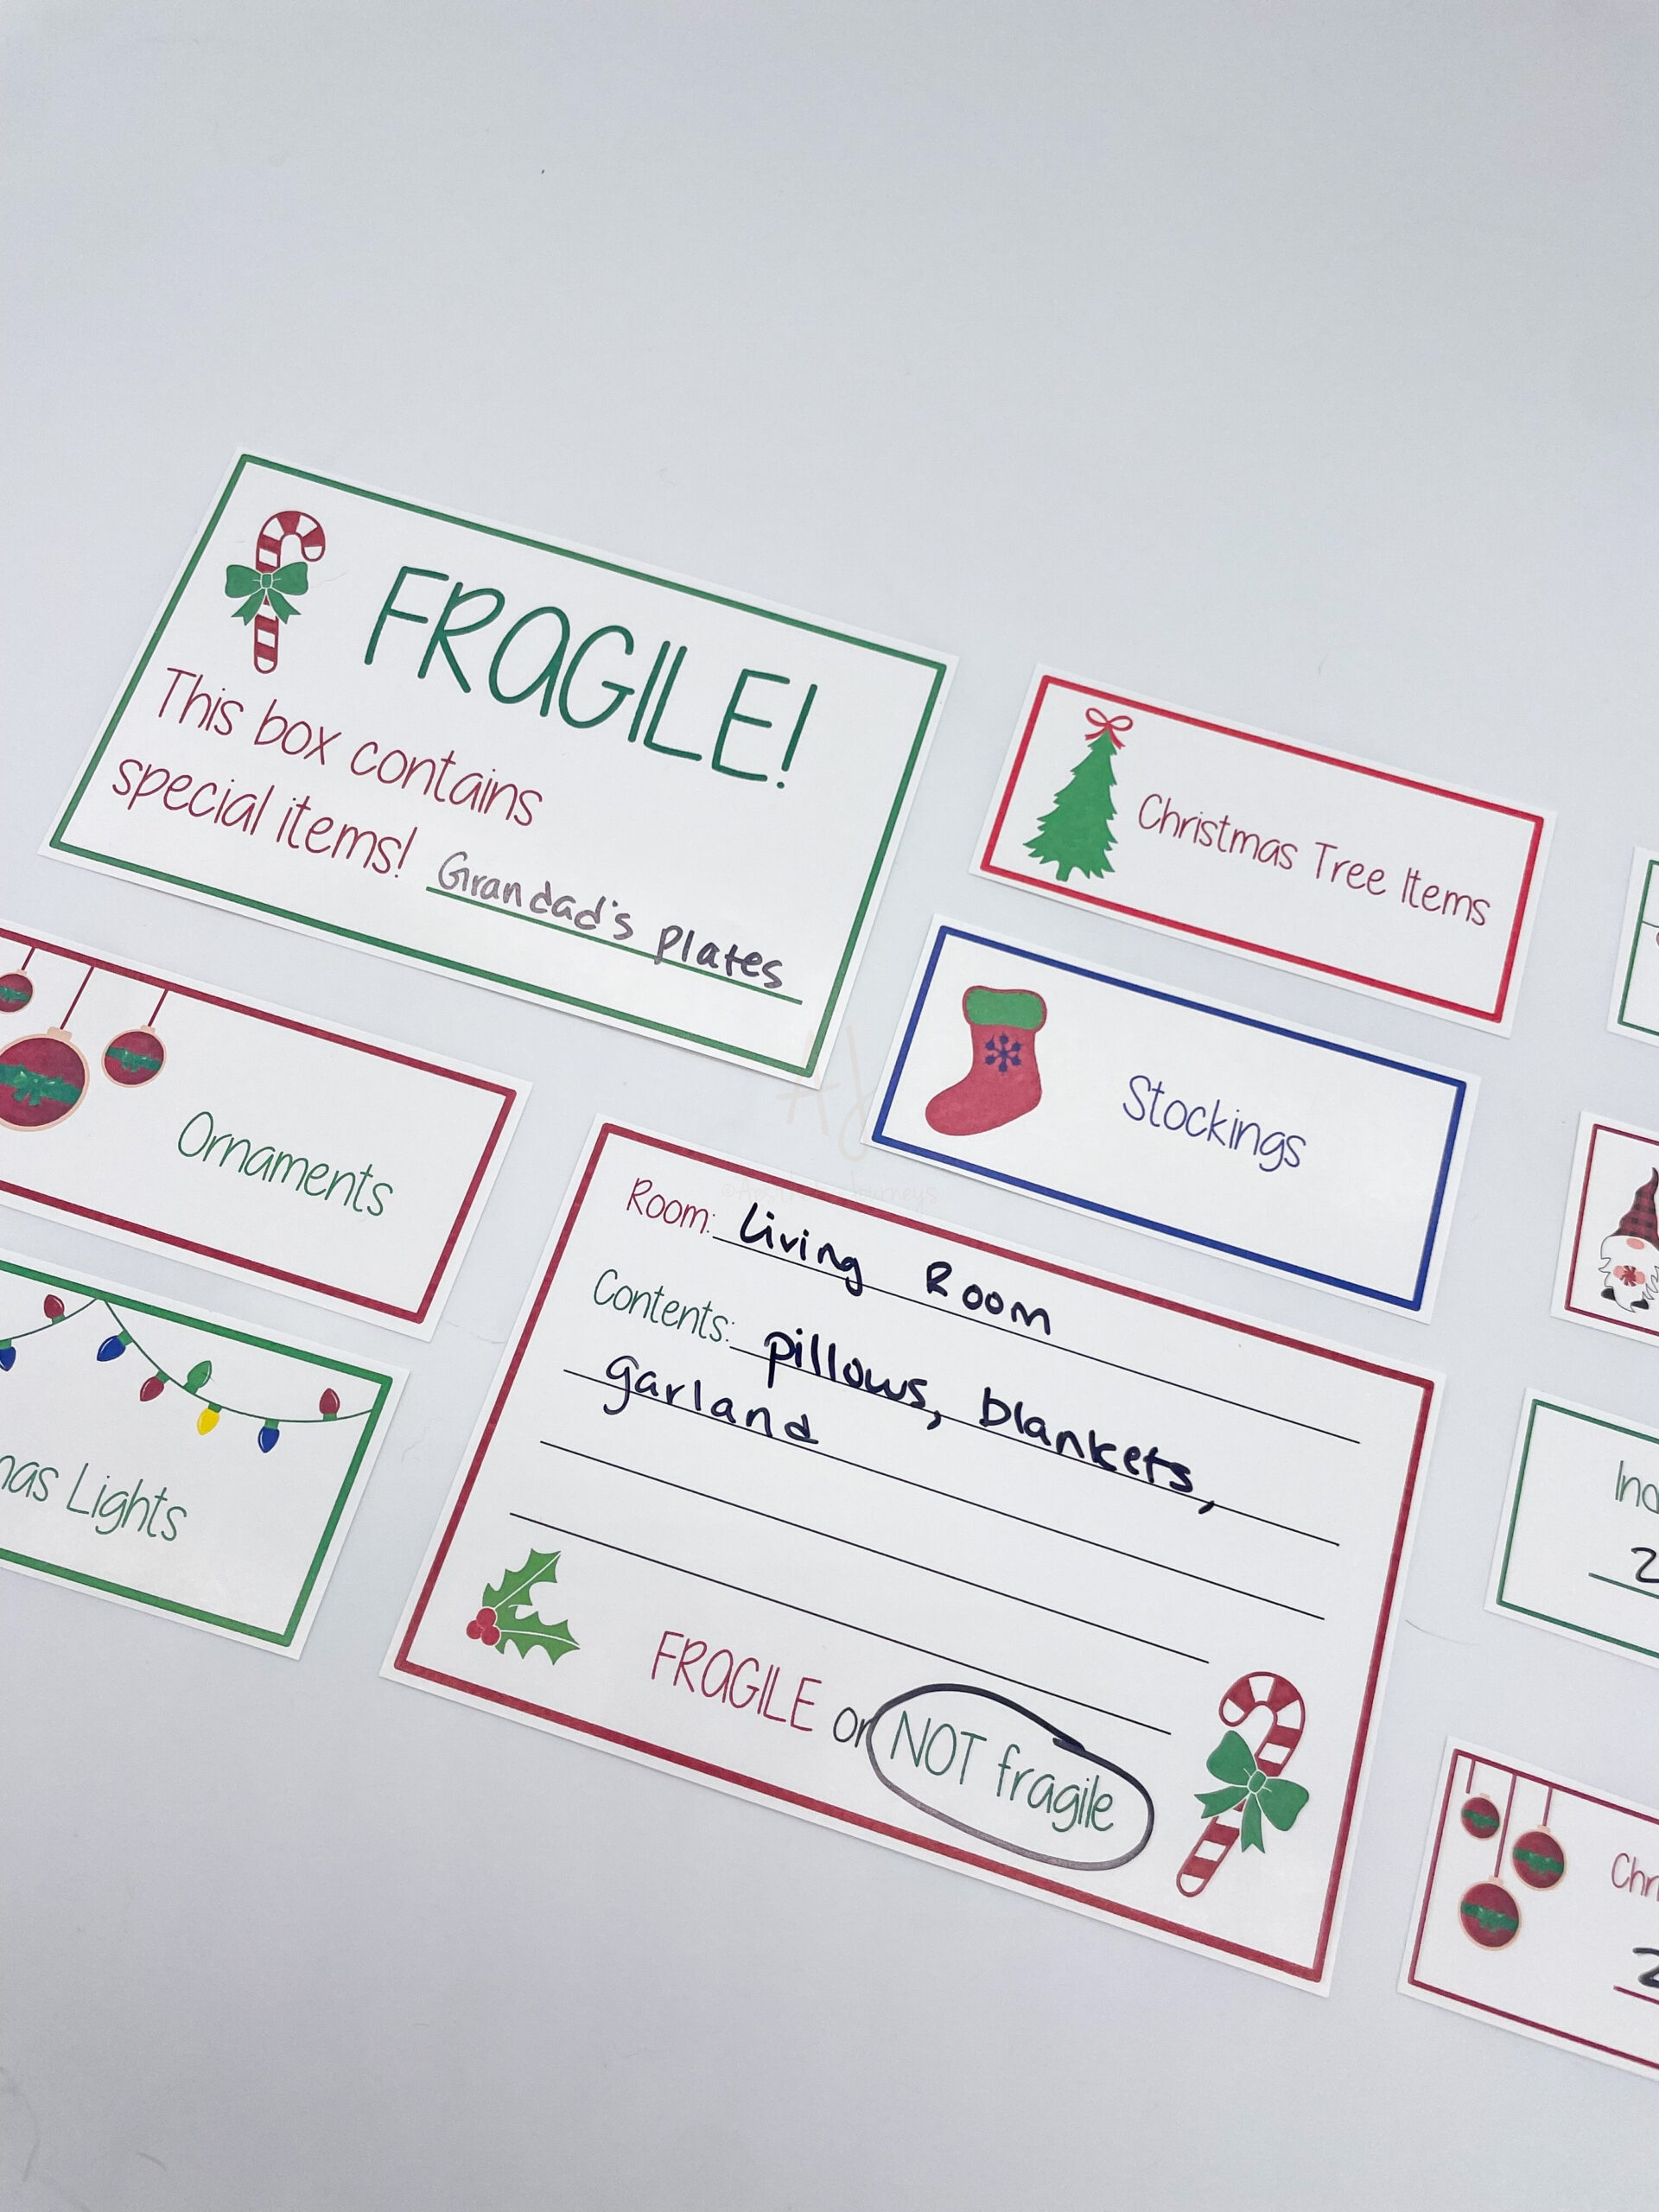 FRAGILE!
This box contains
special items! Grandad's plates
Christmas Tree Items
Stockings
Ornaments
Lights
Room: Living Room
Contents: pillows, blankets,
garland
FRAGILE or NOT fragile